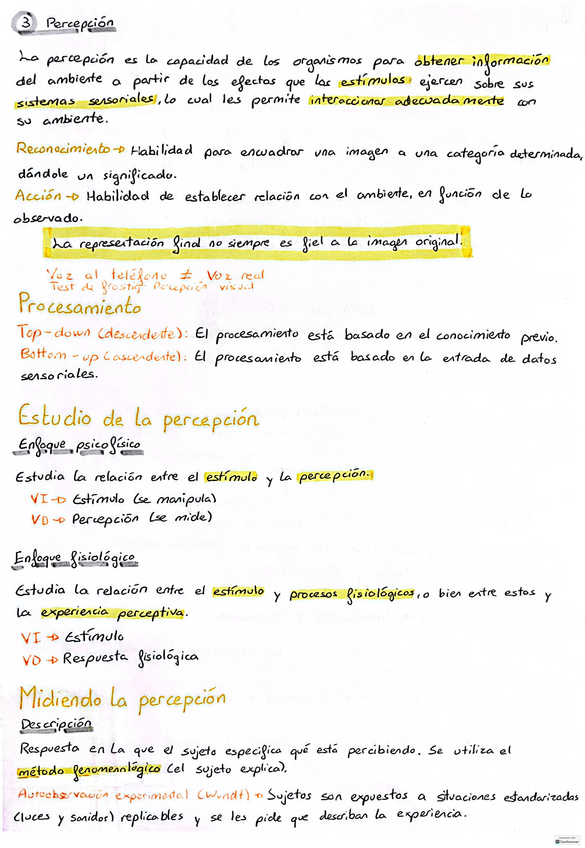 3 Percepción
La percepción es la capacidad de los organismos para obtener información
del ambiente a partir de los efectos que los estímulos ejercen sobre sus
sistemas sensoriales, lo cual les permite interaccionar adecuadamente con
su ambiente.
Reconocimiento → Habilidad para encuadrar una imagen a una categoría determinada,
dándole un significado.
Acción → Habilidad de establecer relación con el ambiente, en función de lo
observado.
La representación final no siempre es fiel a la imagen original.
Voz al teléfono ≠ Voz real
Test de frostig Percepción visual
Procesamiento
Top-down (descendente): El procesamiento está basado en el conocimiento previo.
Bottom-up (ascendente): El procesamiento está basado en la entrada de datos
sensoriales.
Estudio de la percepción
Enfoque psicofísico
Estudia la relación entre el estímulo y la percepción.
VI → Estímulo (se manipula)
VD → Percepción (se mide)
Enfoque fisiológico
Estudia la relación entre el estímulo y procesos fisiológicos, o bien entre estos y
la experiencia perceptiva.
VI → Estímulo
VD → Respuesta fisiológica
Midiendo la percepción
Descripción
Respuesta en La que el sujeto especifica qué está percibiendo. Se utiliza el
método fenomenológico (el sujeto explica).
Autoobservación experimental (Wundt) → Sujetos son expuestos a situaciones estandarizadas
(luces y sonidos) replicables y se les pide que describan la experiencia.
CamScanner